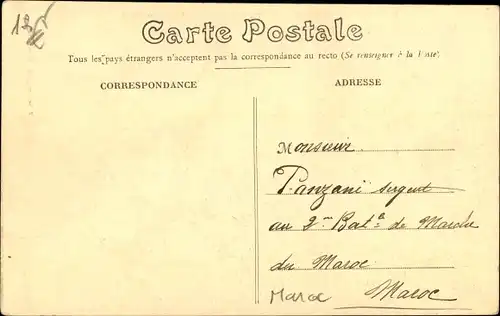 Carte Postale
Tous les pays étrangers n'acceptent pas la correspondance au recto (Se renseigner à la Poste)
CORRESPONDANCE
ADRESSE
Monsieur
Panzani sergent
au 2me Bat. de Marche
du Maroc
Maroc Maroc